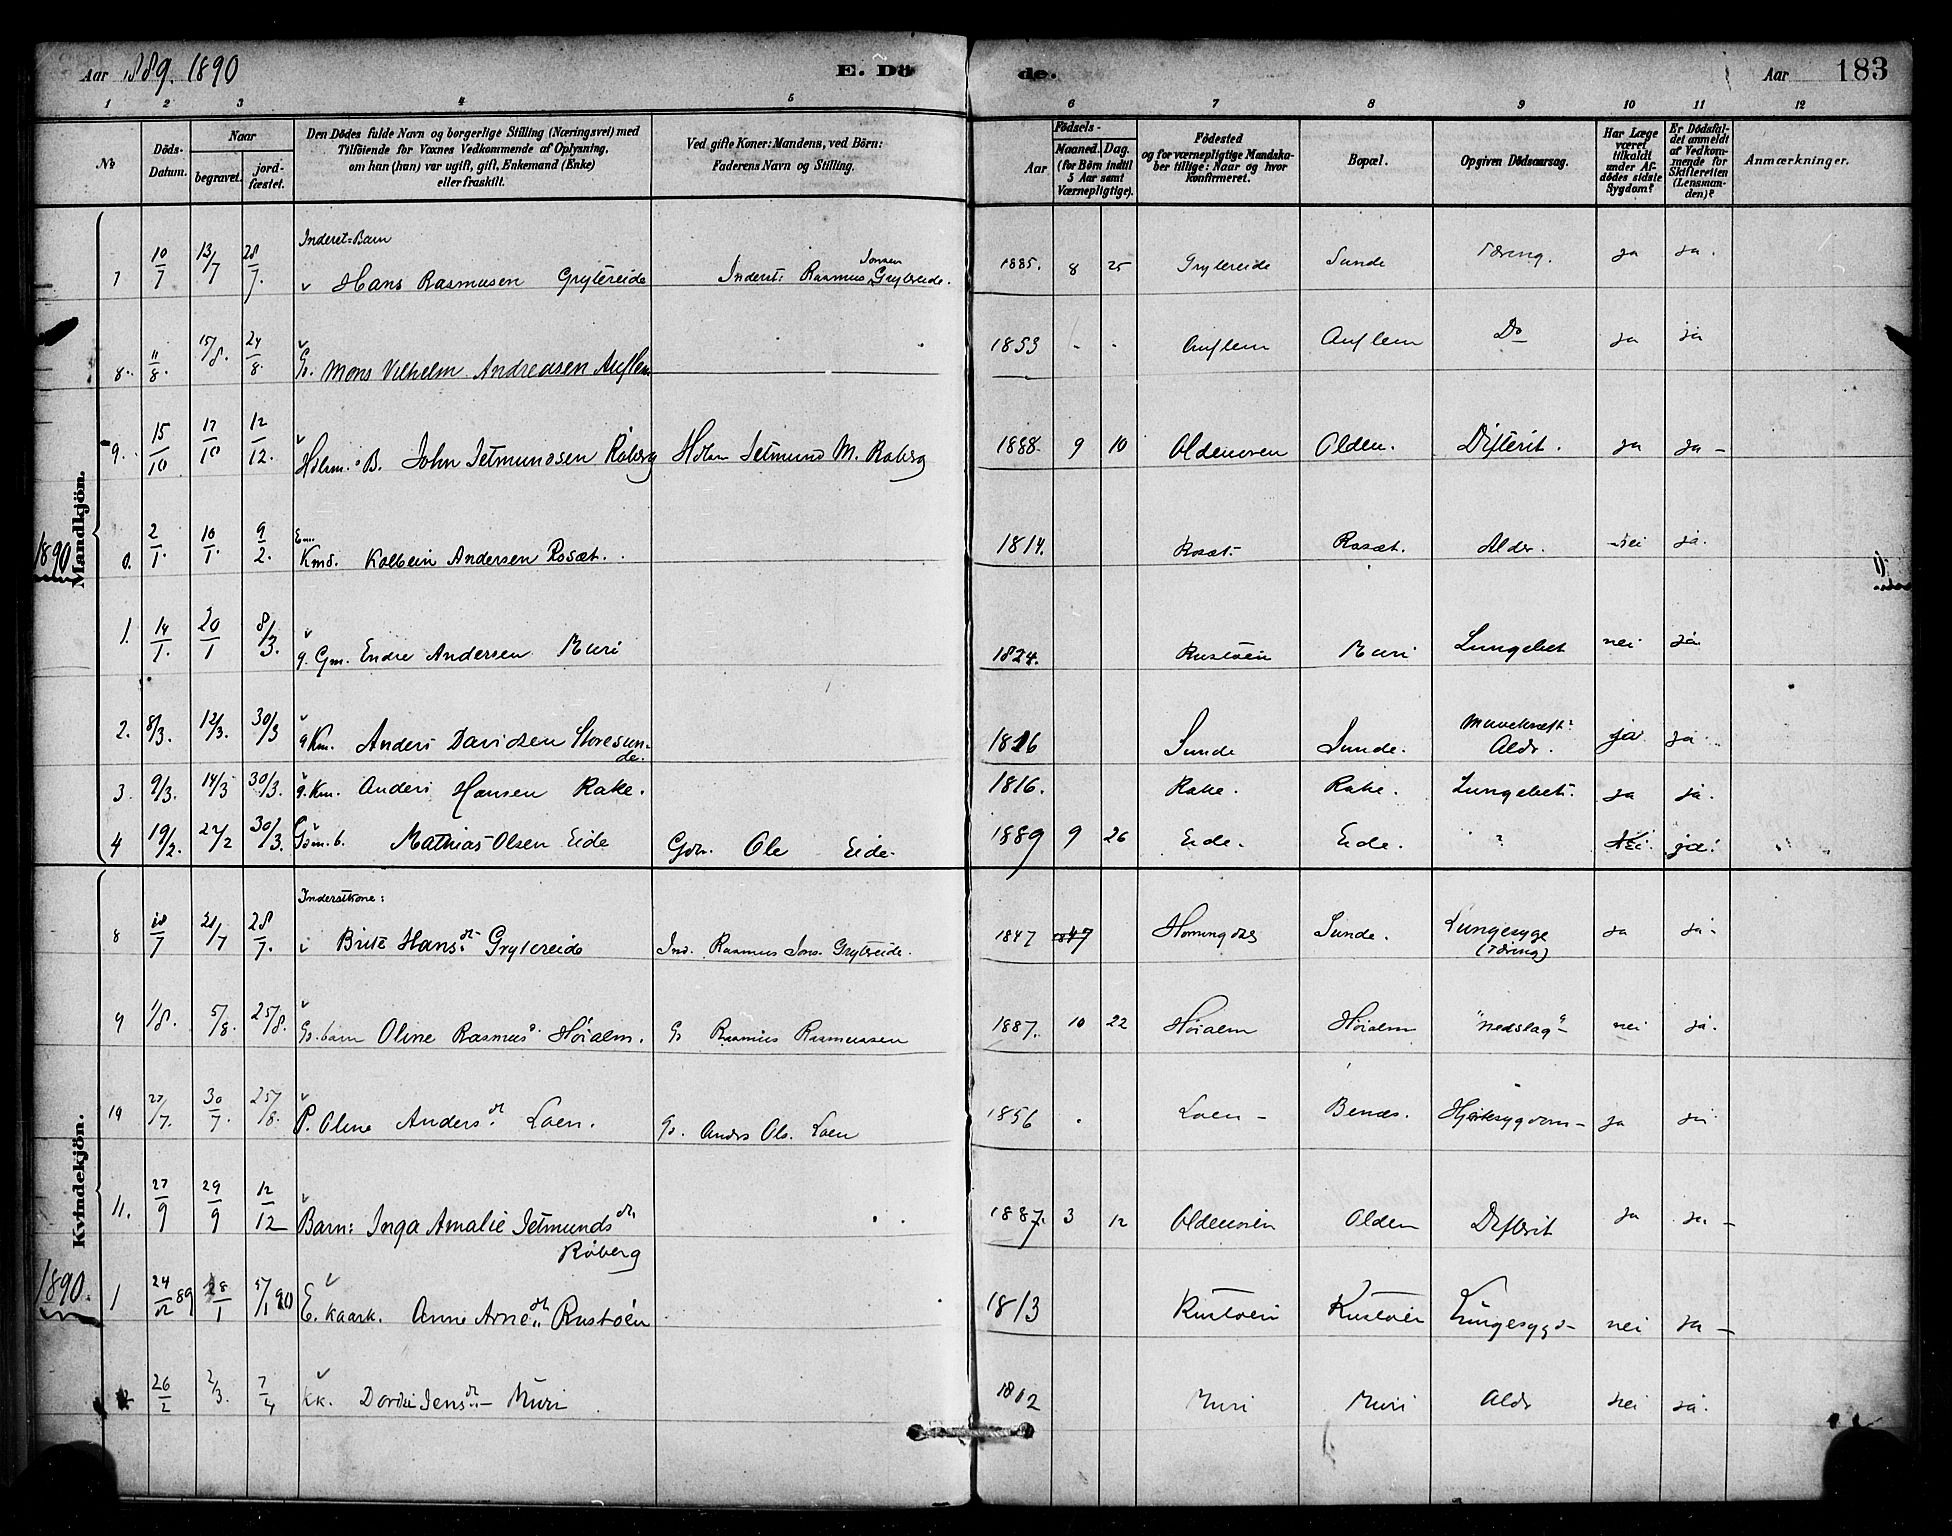 Aar 1889. 1890 E. Dö de. Aar 183
1 2 3 4 5 6 7 8 9 10 11 12
No
Döds-Datum.
Naar
begravet.
jordfæstet.
Den Dödes fulde Navn og borgerlige Stilling (Næringsvei) med
Tilföiende for Voxnes Vedkommende af Oplysning,
om han (hun) var ugift, gift, Enkemand (Enke)
eller fraskilt.
Ved gifte Koner: Mandens, ved Börn:
Faderens Navn og Stilling.
Födsels-
Aar
Maaned. Dag.
(for Börn indtil
5 Aar samt
Værnepligtige).
Födested
og for værnepligtige Mandska-
ber tillige: Naar og hvor
konfirmeret.
Bopæl.
Opgiven Dödsaarsag.
Har Læge
været
tilkaldt
under Af-
dödes sidste
Sygdom?
Er Dödsfal-
det anmeldt
af Vedkom-
mende for
Skifteretten
(Lensman-
den)?
Anmærkninger.
Mandkjön.
Inderst=Barn
7 10/7 13/7 28/7. Hans Rasmusen Grytereide Inderst: Rasmus Jonsen Grytereide. 1885. 8 25 Grytereide Sunde Tæring. ja ja.
8. 11/8. 15/8. 24/8. G. Mons Vilhelm Andreasen Auflem 1853 - - Auflem Auflem Do ja ja
9. 15/10 17/10 12/12. Hdlm. B. John Jetmundsen Röberg Hdlm Jetmund M. Röberg 1888. 9 10 Oldenören Olden. Difterit. ja ja -
1890
0. 2/1. 10/1. 9/2. Em. Kmd. Kolbein Andersen Rosæt. 1814. Rosæt Rosæt. Alder. Nei ja.
1. 14/1. 20/1 8/3. g. Gm. Endre Andersen Muri 1824. Rustöen Muri Lungebet nei ja
2. 8/3. 12/3. 30/3 g Km. Anders Davidsen Storesunde. 1816 Sunde Sunde. Mavekræft: Aldr. ja ja
3. 9/3. 14/3 30/3. g. Km. Anders Hansen Rake. 1816. Rake. Rake. Lungebet. ja ja.
4 19/2. 27/2 30/3. Gdm. b. Mathias Olsen Eide Gdm. Ole Eide. 1889 9 26 Eide. Eide. ? Nei. ja.
Kvindekjön.
Inderstkone:
8 18/7 21/7 28/7. Brite Hans dt Grytereide Ind. Rasmus Jons. Grytereide. 1847 1847 Horningdal Sunde. Lungesyge (Tæring) ja ja.
9 1/8. 5/8. 25/8. G. barn Oline Rasmusd. Höialm. G Rasmus Rasmussen 1887. 10 22 Höialm Höialm "nedslag" - nei ja.
10 27/7. 30/7. 25/8. P. Oline Anders dt Loen. G. Anders Ols. Loen 1856 . Loen - Benæs. Hjertesygdom - ja ja
11. 27/9 29/9 12/12 Barn: Inga Amalie Jetmunds dtr Röberg 1887. 3 12 Oldenören Olden Difterit ja ja -
1890.
1 24/12 89 28/1 5/1 90 E. kaark. Anne Arne dtr Rustöen 1813 Rustöen Rustöen Lungesygd - nei ja -
2 26/2 2/3. 7/4 KK. Dordei Jens dt - Muri 1812 Muri Muri Aldr nei ja.